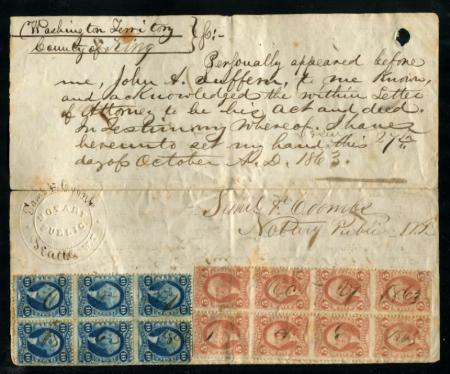 Washington Territory
County of King } ss:-
Personally appeared before
me, John A. Suffern, to me Known,
and acknowledged the within Letter
of Attorney to be his act and deed.
In Testimony Whereof, I have
hereunto set my hand this 7th
day of October A.D. 1863.
Saml F. Coombs
Notary Public W.T.
Saml F. Coombs
NOTARY
PUBLIC
Seattle
Oct 7 1863